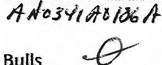 AN0341A0136A
Bulls